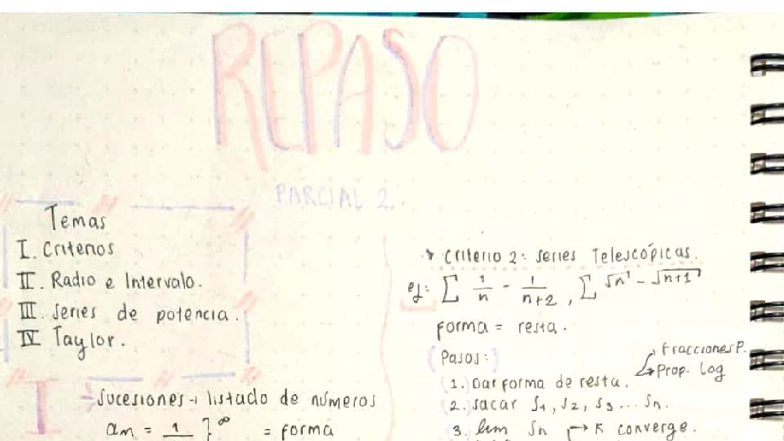 REPASO
PARCIAL 2.
Temas
I. Criterios
II. Radio e Intervalo.
III. Series de potencia.
IV Taylor.
I
→ Sucesiones → listado de números
an = 1 }∞ = forma
* Criterio 2: Series Telescópicas.
ej: Σ 1/n - 1/n+2, Σ √n - √n+1
forma = resta.
(Pasos:)
Fracciones P.
Prop. Log
1. Dar forma de resta.
2. sacar S1, S2, S3 ... Sn.
3. lim Sn → K converge.